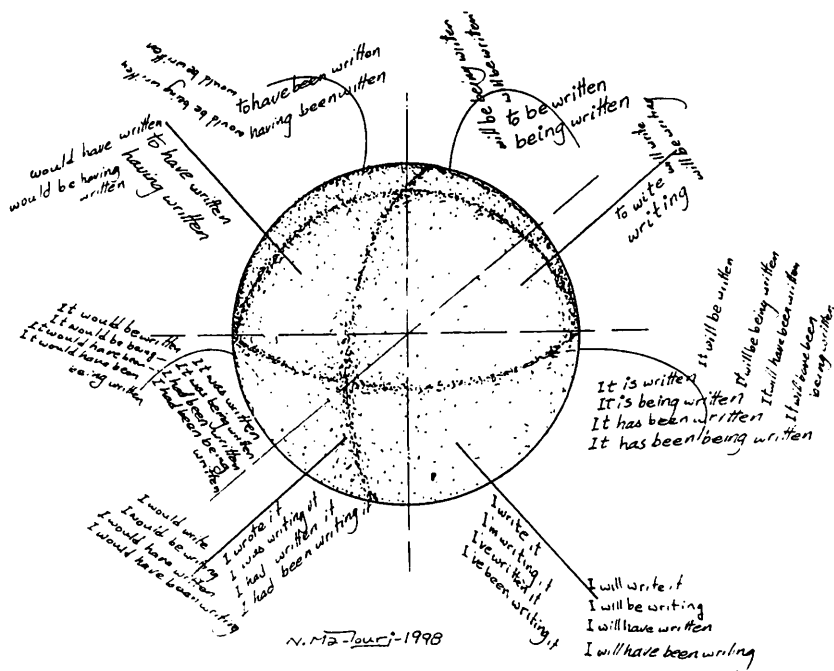 would be written
would be being written
to have been written
having been written
will be being written
will be written
to be written
being written
would have written
would be having
written
to have written
having written
will write
will be writing
to wite
writing
It would be written
It would be being -
It would have been -
It would have been
being written
It was written
It was being written
I had been written
I had been being
written
It will be written
It will be being written
It will have been written
It will have been
being written
It is written
It is being written
It has been written
It has been being written
I would write
I would be writing
I would have written
I would have been writing
I wrote it
I was writing it
I had written it
I had been writing it
I write it
I'm writing it
I've written it
I've been writing it
I will write it
I will be writing
I will have written
I will have been writing
1998